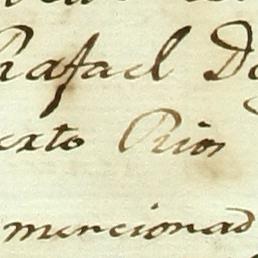 Rafael D
exto Rios
mencionad